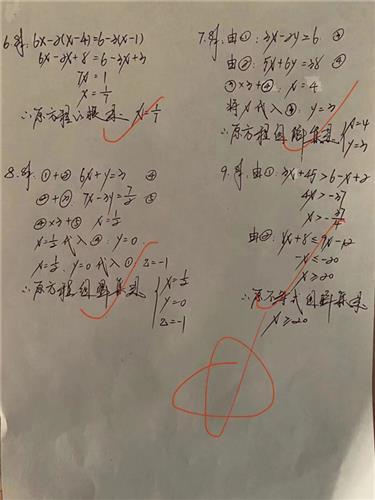 6.解: 6x-2(x-4)=6-3(x-1)
6x-2x+8=6-3x+3
7x=1
x=1/7
∴原方程的根是 x=1/7
7.解: 由①: 3x-2y=6 ③
由②: 5x+6y=38 ④
③×3+④: x=4
将x代入③: y=3
∴原方程组解集是 {x=4
y=3
8.解: ①+② 6x+y=3 ④
②+③: 7x-3y=7/2 ⑤
④×3+⑤ x=1/2
x=1/2代入④: y=0
x=1/2, y=0代入① z=-1
∴原方程组解集是 {x=1/2
y=0
z=-1
9.解: 由①: 3x+45>6-x+2
4x>-37
x>-37/4
由②: 4x+8≤7x-12
-x≤-20
x≥20
∴原不等式组解集是
x≥20